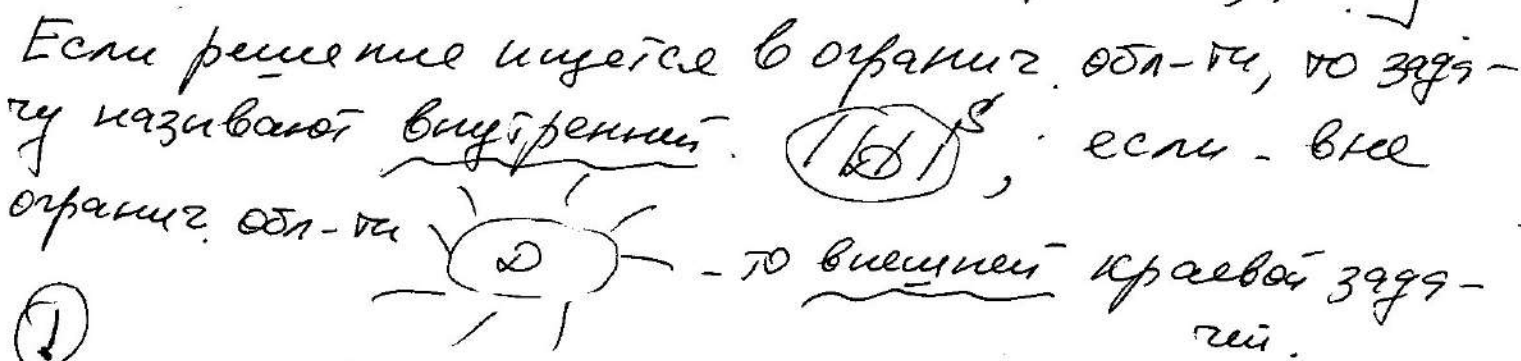 Если решение ищется в огранич. обл-ти, то зада-
чу называют внутренней. D S; если - вне
огранич. обл-ти D - то внешней краевой зада-
чей.
1